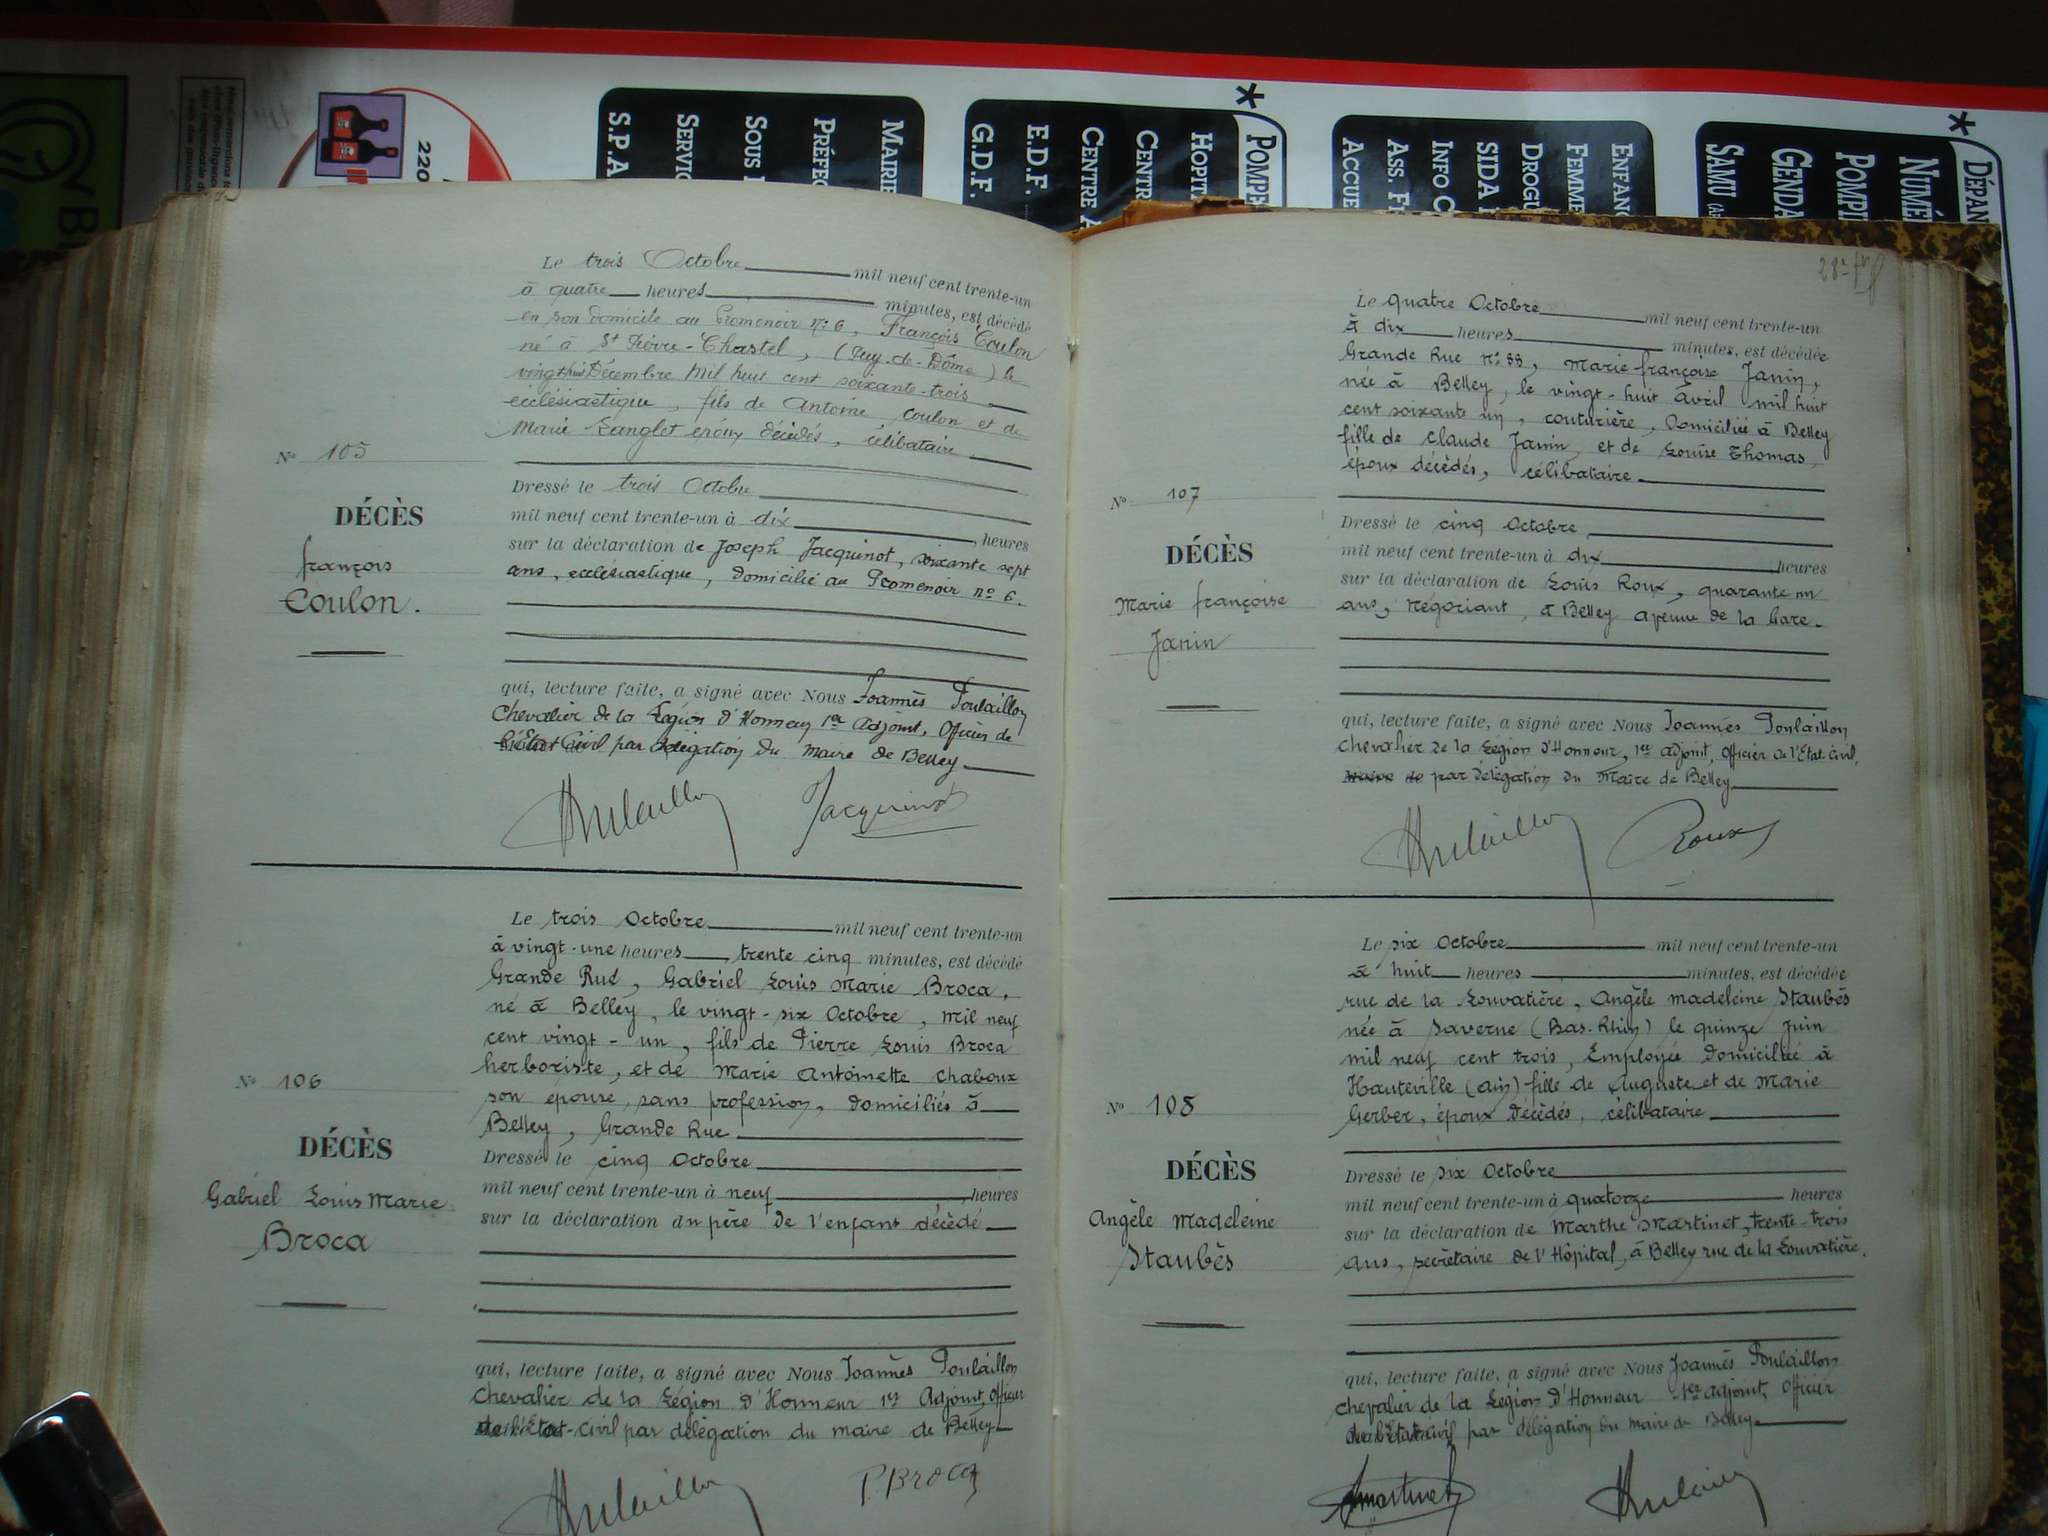 220
S.P.A
SERVIC
SOUS
PRÉFEC
MAIRIE
G.D.F.
E.D.F.
CENTRE A
CENTR
HOPIT
* POMPIE
ACCUE
ASS. F
INFO C
SIDA
DROGU
FEMME
ENFANC
SAMU
GENDA
POMPI
NUMÉ
* DÉPAN
Le trois Octobre mil neuf cent trente-un
à quatre heures minutes, est décédé
en son domicile au Promenoir n° 6, François Coulon
né à St Pierre-Chastel, (Puy-de-Dôme) le
vingt huit Décembre mil huit cent soixante-trois
ecclésiastique, fils de Antoine Coulon et de
Marie Langlet époux décédés, célibataire.
N° 105
DÉCÈS
françois
Coulon.
Dressé le trois Octobre
mil neuf cent trente-un à dix heures
sur la déclaration de Joseph Jacquinot, soixante sept
ans, ecclésiastique, domicilié au Promenoir n° 6.
qui, lecture faite, a signé avec Nous Joannès Poulaillon
Chevalier de la Légion d'Honneur 1er Adjoint, Officier de
l'Etat Civil par délégation du maire de Belley
Jacquinot
Le trois Octobre mil neuf cent trente-un
à vingt-une heures trente cinq minutes, est décédé
Grande Rue, Gabriel Louis Marie Broca,
né à Belley, le vingt-six Octobre, mil neuf
cent vingt-un, fils de Pierre Louis Broca
herboriste, et de Marie Antoinette Chaboux
son épouse, sans profession, domiciliés à
Belley, Grande Rue
N° 106
DÉCÈS
Gabriel Louis Marie
Broca
Dressé le cinq Octobre
mil neuf cent trente-un à neuf heures
sur la déclaration du père de l'enfant décédé
qui, lecture faite, a signé avec Nous Joannès Poulaillon
Chevalier de la Légion d'Honneur 1er Adjoint, Officier
de l'Etat-Civil par délégation du maire de Belley
P. BROCA
Le quatre Octobre mil neuf cent trente-un
à dix heures minutes, est décédée
Grande Rue n° 88, Marie françoise Janin,
née à Belley, le vingt-huit Avril mil huit
cent soixante un, couturière, domiciliée à Belley
fille de Claude Janin, et de Louise Thomas,
époux décédés, célibataire.
N° 107
DÉCÈS
Marie françoise
Janin
Dressé le cinq Octobre
mil neuf cent trente-un à dix heures
sur la déclaration de Louis Roux, quarante un
ans, négociant, à Belley avenue de la Gare.
qui, lecture faite, a signé avec Nous Joannès Poulaillon
Chevalier de la Légion d'Honneur, 1er adjoint, Officier de l'Etat-Civil,
par délégation du Maire de Belley
Roux
Le six Octobre mil neuf cent trente-un
à huit heures minutes, est décédée
rue de la Louvatière, Angèle Madeleine Staubès
née à Saverne (Bas-Rhin) le quinze Juin
mil neuf cent trois, Employée domiciliée à
Hauteville (Ain) fille de Auguste et de Marie
Gerber, époux décédés, célibataire
N° 108
DÉCÈS
Angèle Madeleine
Staubès
Dressé le six Octobre
mil neuf cent trente-un à quatorze heures
sur la déclaration de Marthe Martinet, trente-trois
ans, secrétaire de l'Hôpital, à Belley rue de la Louvatière.
qui, lecture faite, a signé avec Nous Joannès Poulaillon
chevalier de la Légion d'Honneur 1er adjoint, Officier
de l'état civil par délégation du maire de Belley
Martinet